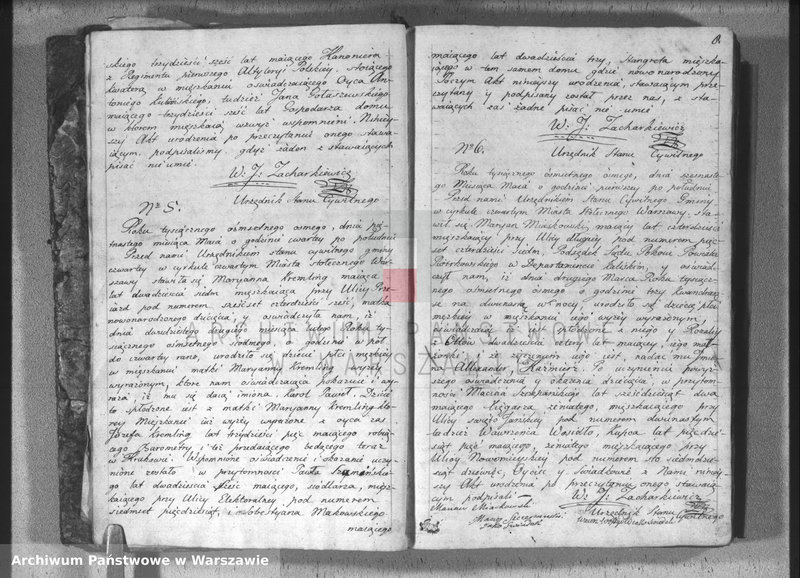 skiego trzydzieści sześć lat mającego Kanoniera
z Regimentu pierwszego Artyleryi Polskiey, stojącego
kwaterą w mieszkaniu oświadczającego Oyca An-
toniego tudzież Jana Gołaszewskiego
mającego trzydzieści sześć lat Gospodarza domu
w którem mieszkają wyżey wspomnieni. Ninièy-
szy Akt urodzenia po przeczytaniu onego stawa-
iącym, podpisaliśmy gdyż żaden z stawaiących
pisać nie umie
W. J: Zacharkiewicz
Urzędnik Stanu Cywilnego
No 5.
Roku tysiącznego osmsetnego osmego, dnia pięt-
nastego miesiąca Maia o godzinie czwartey po południu
Przed nami Urzędnikiem stanu cywilnego gminy
czwartey w cyrkule czwartym Miasta stołecznego War-
szawy stawiła się Maryanna Kremling maiąca
lat dwadzieścia siedm mieszkaiąca przy Ulicy Prze-
iazd pod numerem sześćset czterdzieści sześć, matka
nowonarodzonego dziecięcia, y oświadczyła nam, iż
dnia dwudziestego drugiego miesiąca lutego Roku ty-
siącznego osmsetnego siodmego, o godzinie w pół
do czwartey rano, urodziło się dziecie płci męzkiey
w mieszkaniu matki Maryanny Kremling wyżey
wyrażonym, które nam oświadczaiąca pokazuie i wy-
raża, iż mu są daią imiona Karol Paweł. Dziecie
to spłodzone iest z matki Maryanny Kremling któ-
rey Mieszkanie iuż wyżey wyrażone z oyca zas
Jozefa Kremling lat trzydzieści pięć maiącego robią-
cego Barometry i te przedaiącego będącego teraz
w Krakowie. Wspomnione oświadczenie i okazanie uczy-
nione zostało w przytomności Pawła
go lat dwadzieścia sześć maiącego, siodlarza, miesz-
kaiącego przy Ulicy Elektoralney pod numerem
siedmset pięćdziesiąt, i Sobestyana Makowskiego
maiącego
8.
maiącego lat dwadzieścia trzy, Stangreta mieszka-
iącego w tem samem domu gdzie nowonarodzony
Poczym Akt ninieyszy urodzenia, stawaiącym prze-
czytany y podpisany został przez nas, a sta-
waiących zaś żadne pisać nie umie
W. J. Zacharkiewicz
Urzędnik Stanu Cywilnego
No 6.
Roku tysiącznego osmsetnego osmego, dnia szesnaste-
go Miesiąca Maia o godzinie pierwszey po południu
Przed nami Urzędnikiem Stanu Cywilnego Gminy
w cyrkule czwartym Miasta Stołecznego Warszawy, sta-
wił się Maryan Miaskowski, maiący lat czterdzieści
mieszkaiący przy Ulicy długiey pod numerem pięć-
set czterdzieści siedm, Podsędek Sądu Pokoiu Powiatu
Piotrkowskiego w Departamencie Kaliskim, y oświad-
czył nam, iż dnia drugiego Marca Roku tysiącz-
nego osmsetnego osmego o godzinie trzy kwandran-
se na dwunastą w nocy urodziło się dziecie płci
męzkiey w mieszkaniu iego wyżey wyrażonym,
oświadczaiąc iż iest spłodzone z niego y Rozalii
z lat dwadzieścia cztery lat maiącey, iego mał-
żonki, i że życzeniem iego iest, nadać mu Imio-
na Alexander, Kazimierz. Po uczynieniu powyż-
szego oświadczenia y okazania dziecięcia, w przytom-
ności Macieia lat sześćdziesiąt dwa
maiącego żonatego, mieszkaiącego przy
Ulicy Święto Jańskiey pod numerem dwunastym
tudzież Wawrzeńca Wasiołło, kupca lat pięćdzie-
siąt pięć maiącego, żonatego mieszkaiącego przy
Ulicy Nowomieyskiey pod numerem sto siedmdzie-
siąt dziewięć, Oyciec y świadkowie z Nami niniey-
szy Akt urodzenia po przeczytaniu onego stawaią-
cym podpisali
Maryan Miaskowski
W. J. Zacharkiewicz
Urzędnik Stanu Cywilnego
ARCHIWUM PAŃSTWOWE
W WARSZAWIE
Archiwum Państwowe w Warszawie